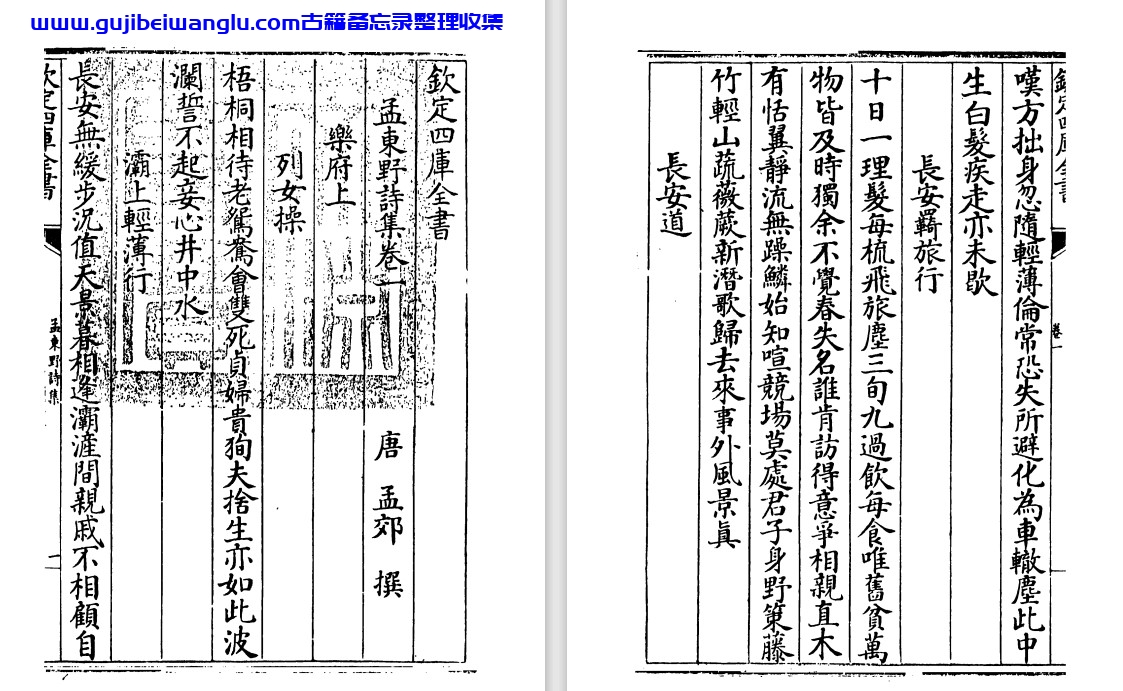 www.gujibeiwanglu.com古籍备忘录整理收集
欽定四庫全書
孟東野詩集卷一 唐 孟郊 撰
樂府上
列女操
梧桐相待老鴛鴦會雙死貞婦貴狥夫捨生亦如此波
瀾誓不起妾心井中水
灞上輕薄行
長安無緩步況值天景暮相逢灞滻間親戚不相顧自
欽定四庫全書
孟東野詩集
嘆方拙身忽隨輕薄倫常恐失所避化為車轍塵此中
生白髮疾走亦未歇
長安羇旅行
十日一理髮每梳飛旅塵三旬九過飲每食唯舊貧萬
物皆及時獨余不覺春失名誰肯訪得意爭相親直木
有恬翼靜流無躁鱗始知喧競場莫處君子身野策藤
竹輕山蔬薇蕨新潛歌歸去來事外風景真
長安道
欽定四庫全書
卷一